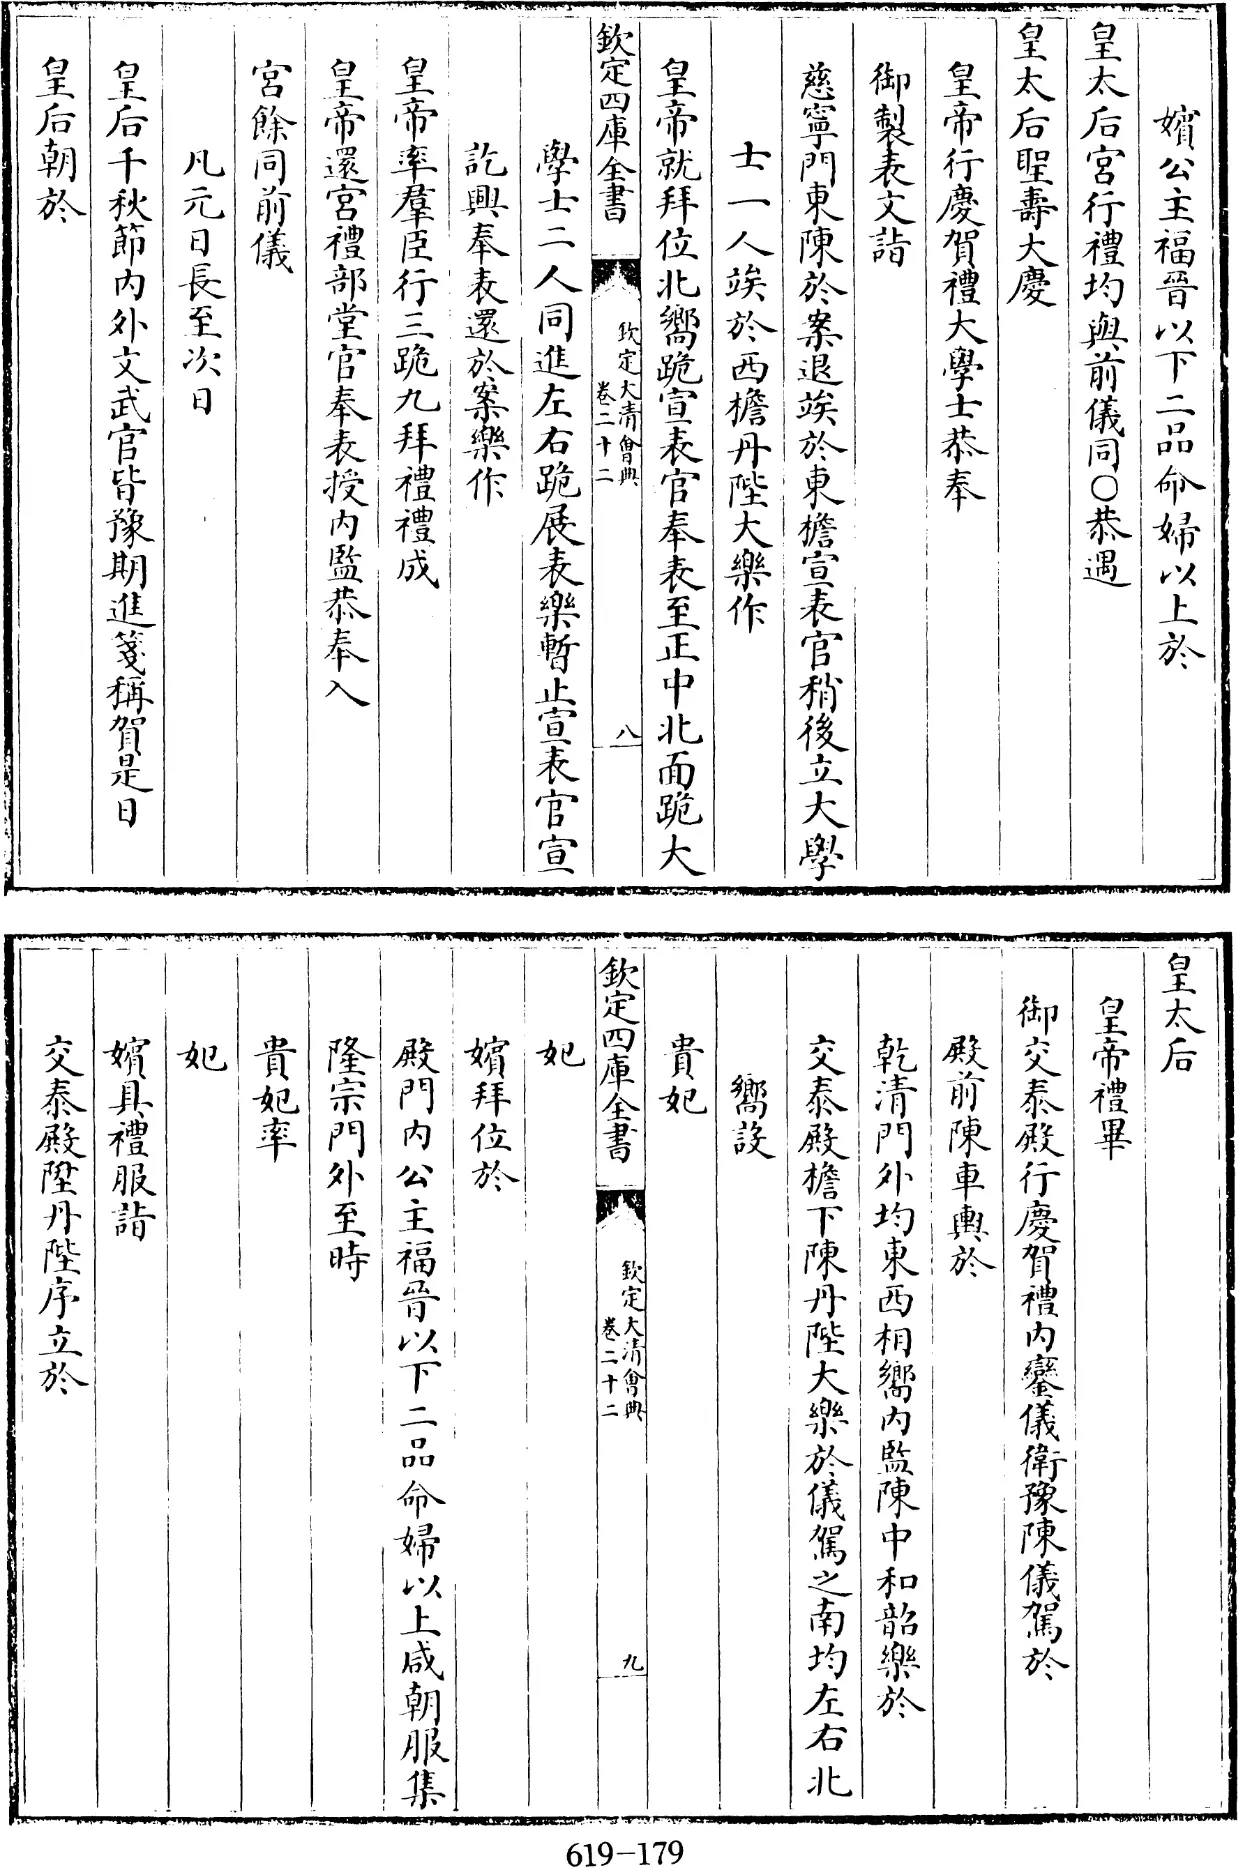 嬪公主福晉以下二品命婦以上於
皇太后宮行禮均與前儀同○恭遇
皇太后聖壽大慶
皇帝行慶賀禮大學士恭奉
御製表文詣
慈寧門東陳於案退竢於東檐宣表官稍後立大學
士一人竢於西檐丹陛大樂作
皇帝就拜位北嚮跪宣表官奉表至正中北面跪大
欽定四庫全書
欽定大清會典
卷二十二
八
學士二人同進左右跪展表樂暫止宣表官宣
訖興奉表還於案樂作
皇帝率羣臣行三跪九拜禮禮成
皇帝還宮禮部堂官奉表授內監恭奉入
宮餘同前儀
凡元日長至次日
皇后千秋節內外文武官皆豫期進箋稱賀是日
皇后朝於
皇太后
皇帝禮畢
御交泰殿行慶賀禮內鑾儀衛豫陳儀駕於
殿前陳車輿於
乾清門外均東西相嚮內監陳中和韶樂於
交泰殿檐下陳丹陛大樂於儀駕之南均左右北
嚮設
貴妃
欽定四庫全書
欽定大清會典
卷二十二
九
妃
嬪拜位於
殿門內公主福晉以下二品命婦以上咸朝服集
隆宗門外至時
貴妃率
妃
嬪具禮服詣
交泰殿陞丹陛序立於
619-179